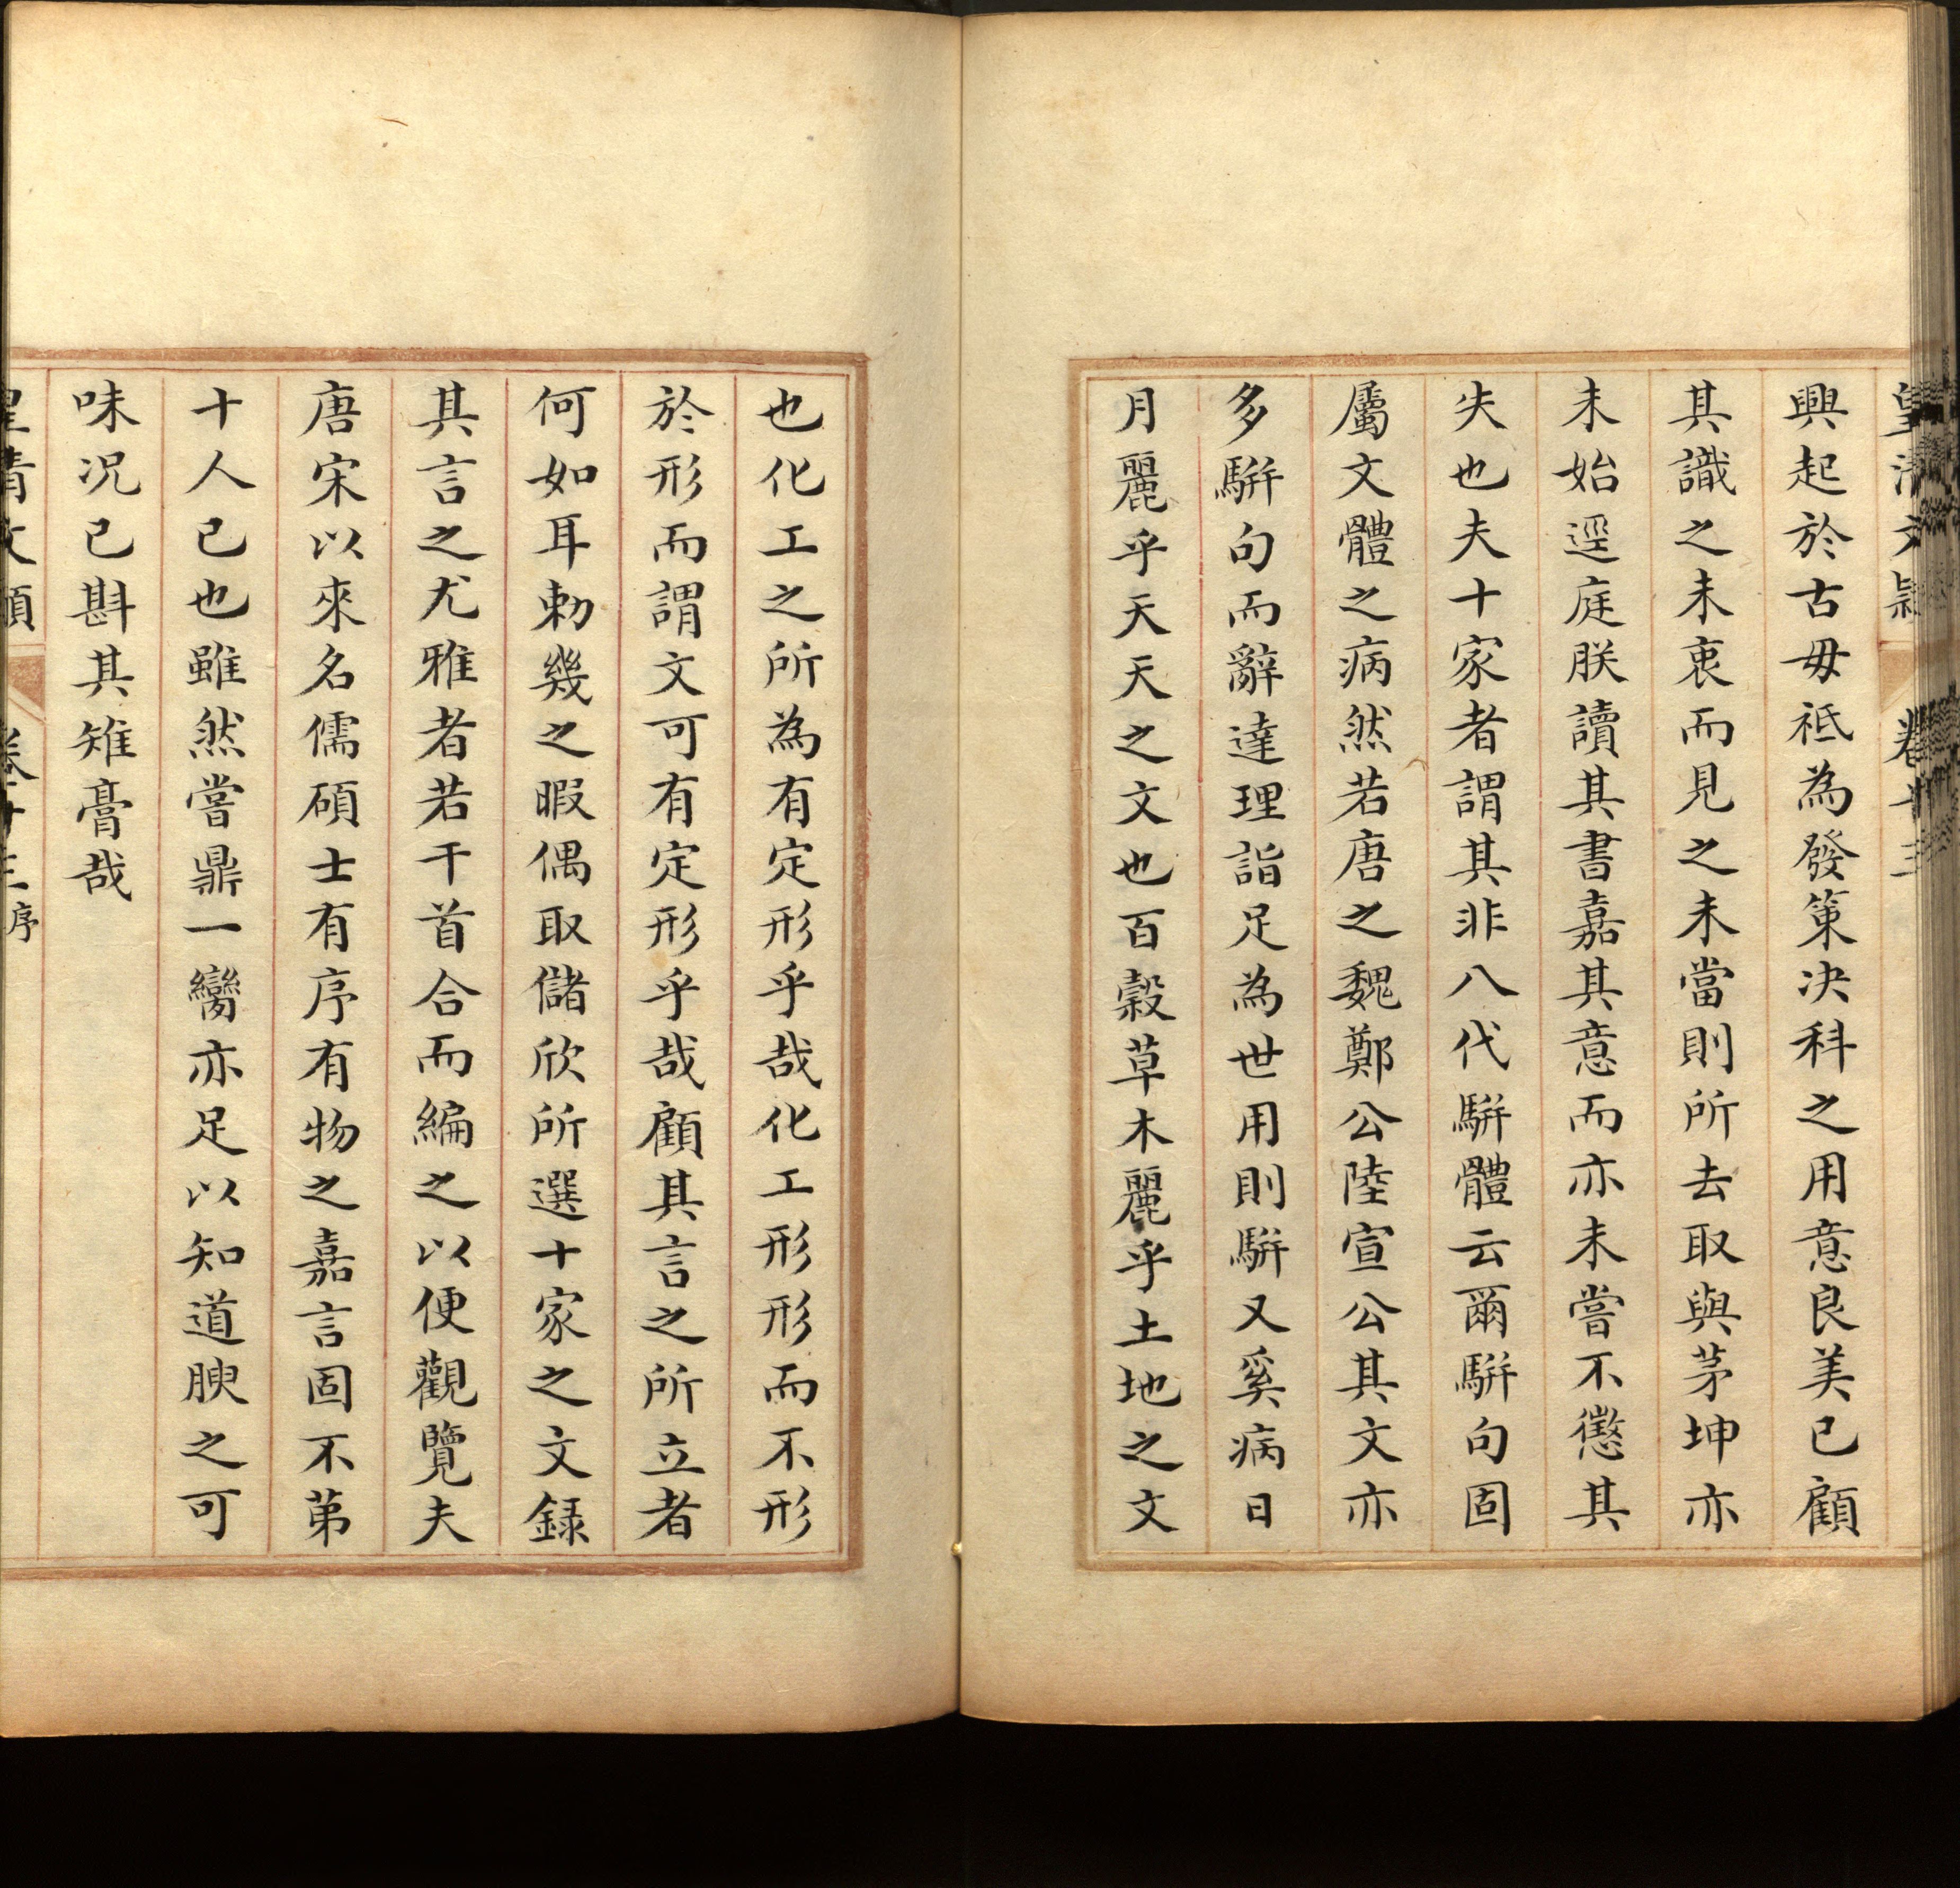 皇清文穎 卷十三
興起於古毋祗為發策决科之用意良美已顧
其識之未衷而見之未當則所去取與茅坤亦
未始逕庭朕讀其書嘉其意而亦未嘗不懲其
失也夫十家者謂其非八代駢體云爾駢句固
屬文體之病然若唐之魏鄭公陸宣公其文亦
多駢句而辭達理詣足為世用則駢又奚病日
月麗乎天天之文也百穀草木麗乎土地之文
也化工之所為有定形乎哉化工形形而不形
於形而謂文可有定形乎哉顧其言之所立者
何如耳勅幾之暇偶取儲欣所選十家之文録
其言之尤雅者若干首合而編之以便觀覽夫
唐宋以來名儒碩士有序有物之嘉言固不第
十人已也雖然嘗鼎一臠亦足以知道腴之可
味况已斟其雉膏哉
皇清文穎 卷十三 序